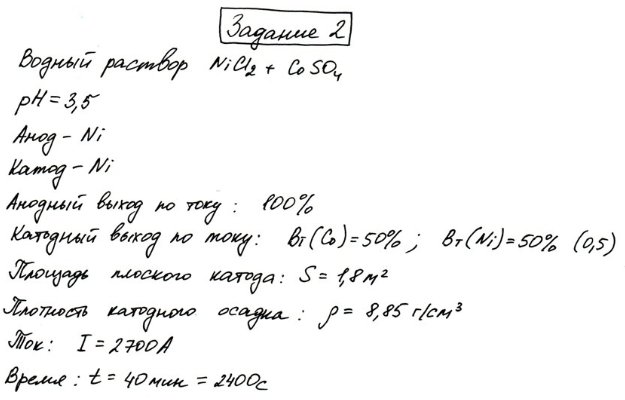 Задание 2
Водный раствор NiCl₂ + CoSO₄
pH = 3,5
Анод – Ni
Катод – Ni
Анодный выход по току : 100%
Катодный выход по току: Вт(Co)=50% ; Вт(Ni)=50% (0,5)
Площадь плоского катода: S = 1,8 м²
Плотность катодного осадка : ρ = 8,85 г/см³
Ток: I = 2700А
Время : t = 40 мин = 2400с